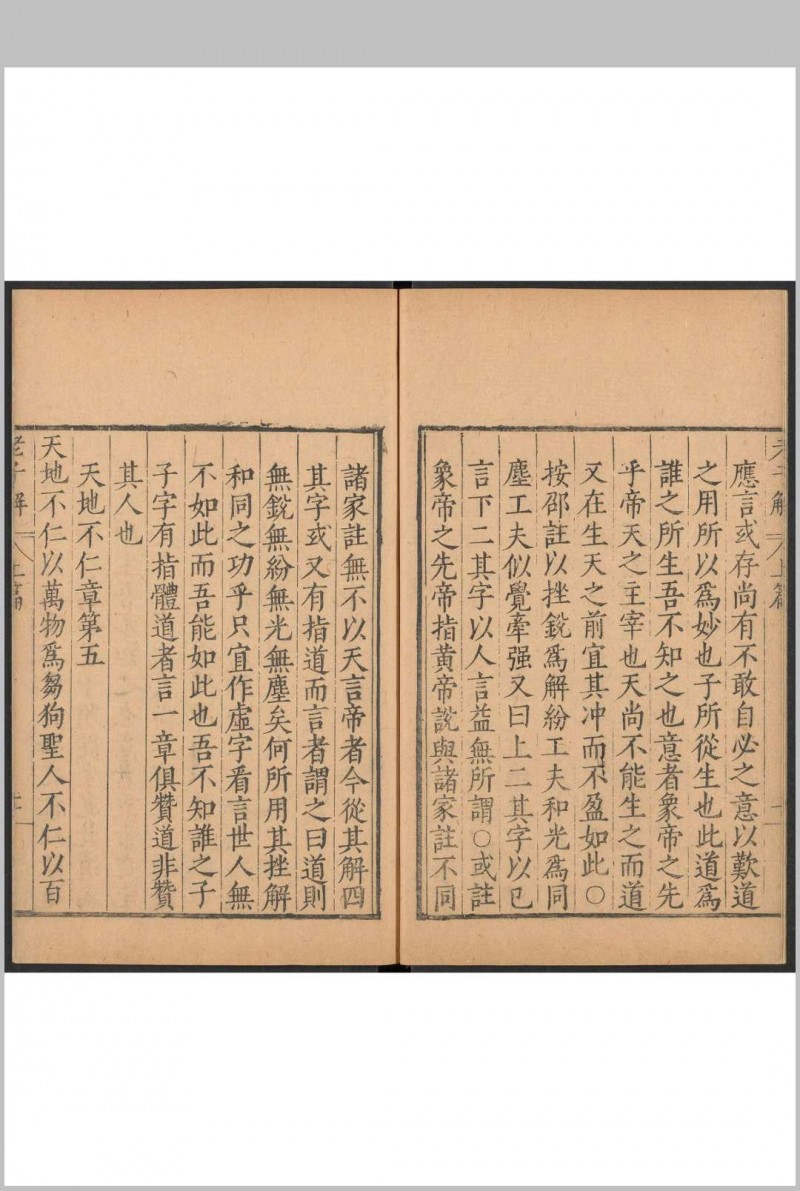 應言或存尚有不敢自必之意以歎道
之用所以爲妙也子所從生也此道爲
誰之所生吾不知之也意者象帝之先
乎帝天之主宰也天尚不能生之而道
又在生天之前宜其冲而不盈如此○
按邵註以挫銳爲解紛工夫和光爲同
塵工夫似覺牽强又曰上二其字以已
言下二其字以人言益無所謂○或註
象帝之先帝指黄帝説與諸家註不同
諸家註無不以天言帝者今從其解四
其字或又有指道而言者謂之曰道則
無銳無紛無光無塵矣何所用其挫解
和同之功乎只宜作虛字看言世人無
不如此而吾能如此也吾不知誰之子
子字有指體道者言一章俱贊道非贊
其人也
天地不仁章第五
天地不仁以萬物爲芻狗聖人不仁以百
老子解 上篇